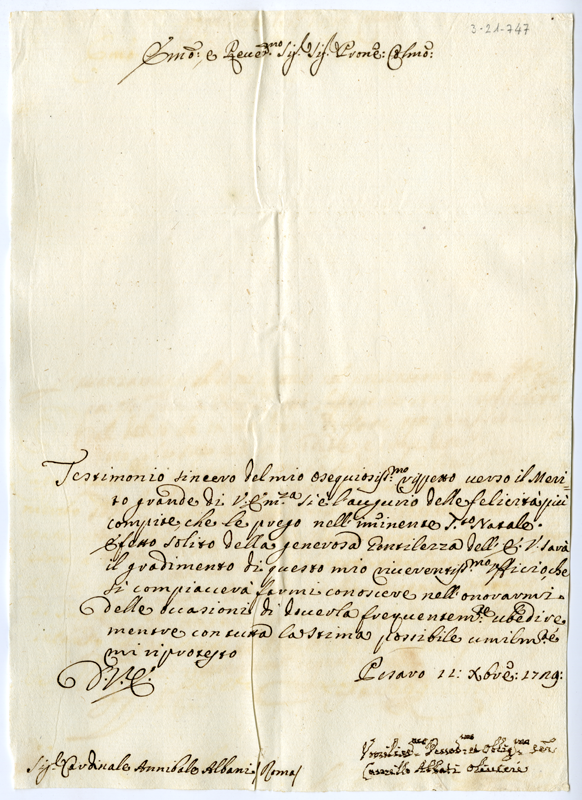 3-21-747
Emo: e Reuedmo Sig: Sig: Prone: Colmo:
Testimonio sincero del mio osequiosissmo rispetto uerso il Meri-
to grande di V. Emza si è l'augurio delle felicità più
compite che le prego nell'iminente Sto Natale.
Effetto solito della generosa Gentilezza dell'E. V. sarà
il gradimento di questo mio riuerentissmo Officio, che
si compiacerà farmi conoscere nell'onorarmi
delle occasioni di douerla frequentemte ubedire
mentre con tutta la stima possibile umilmte
mi riprotesto
D. V. E.
Pesaro 11: Xbre: 1729:
Vmilissmo Deuotmo et Obligmo ser
Camillo Abbati Oliuieri
Sig: Cardinale Annibale Albani / Roma /